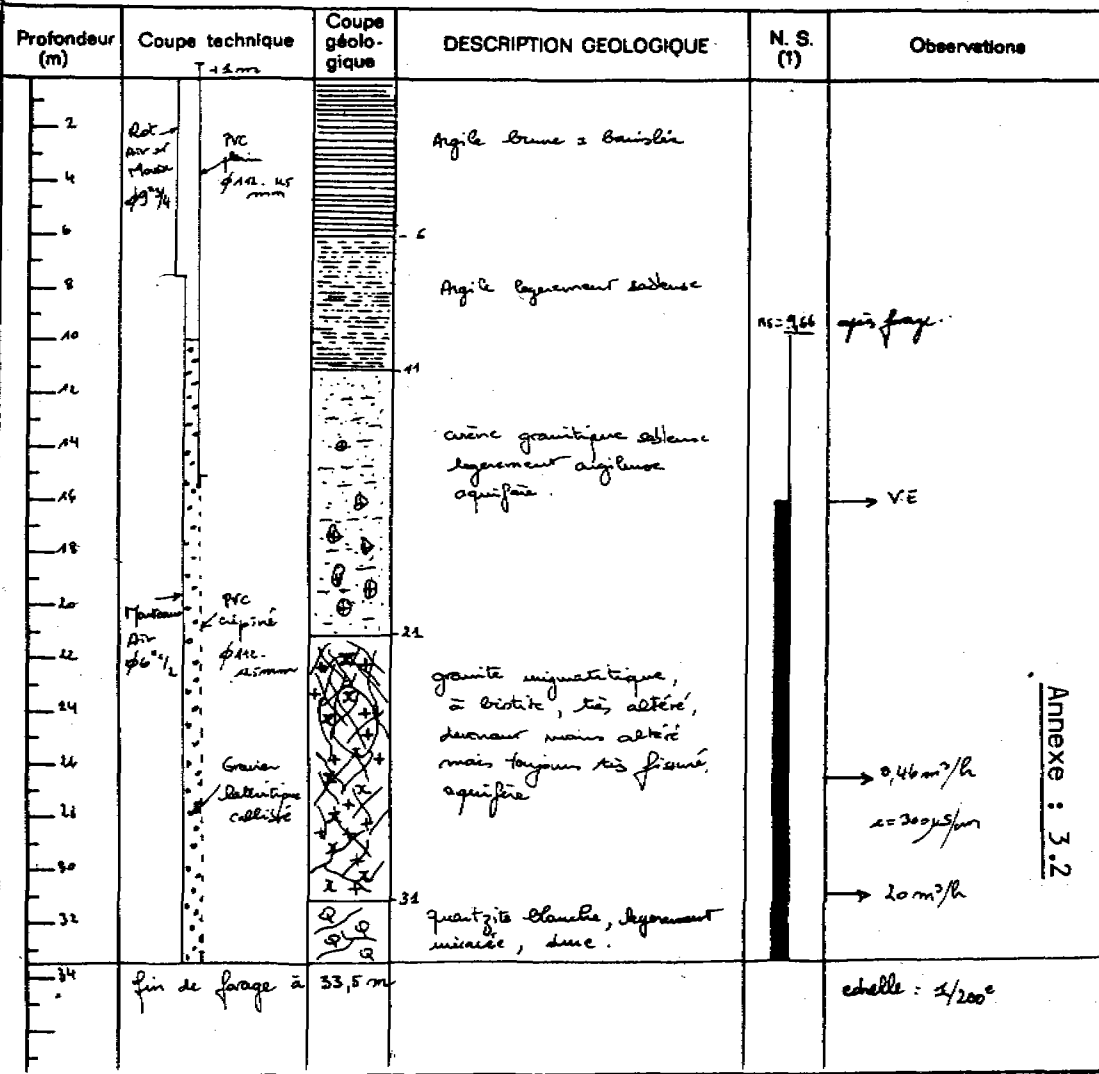 Profondeur
(m)
Coupe technique
+1m
Coupe
géolo-
gique
DESCRIPTION GEOLOGIQUE
N. S.
(1)
Observations
2
4
6
8
10
12
14
16
18
20
22
24
26
28
30
32
34
Rot
Air et
Mousse
φ9"3/4
PVC
plein
φ112-125
mm
Marteau
Air
φ6"1/2
PVC
crépiné
φ112-
125mm
Gravier
latéritique
calibré
6
11
21
31
Argile brune
Argile legerement sableuse
arène granitique sableuse
legerement argileuse
aquifère.
granite migmatitique,
à biotite, très altéré,
devenant moins altéré
mais toujours très fissuré,
aquifère
quartzite blanche, legerement
micacée, dure.
ns=9,66
après forage.
V.E
0,46 m³/h
c=300µS/cm
20 m³/h
fin de forage à 33,5 m
echelle : 1/200e
Annexe : 3.2